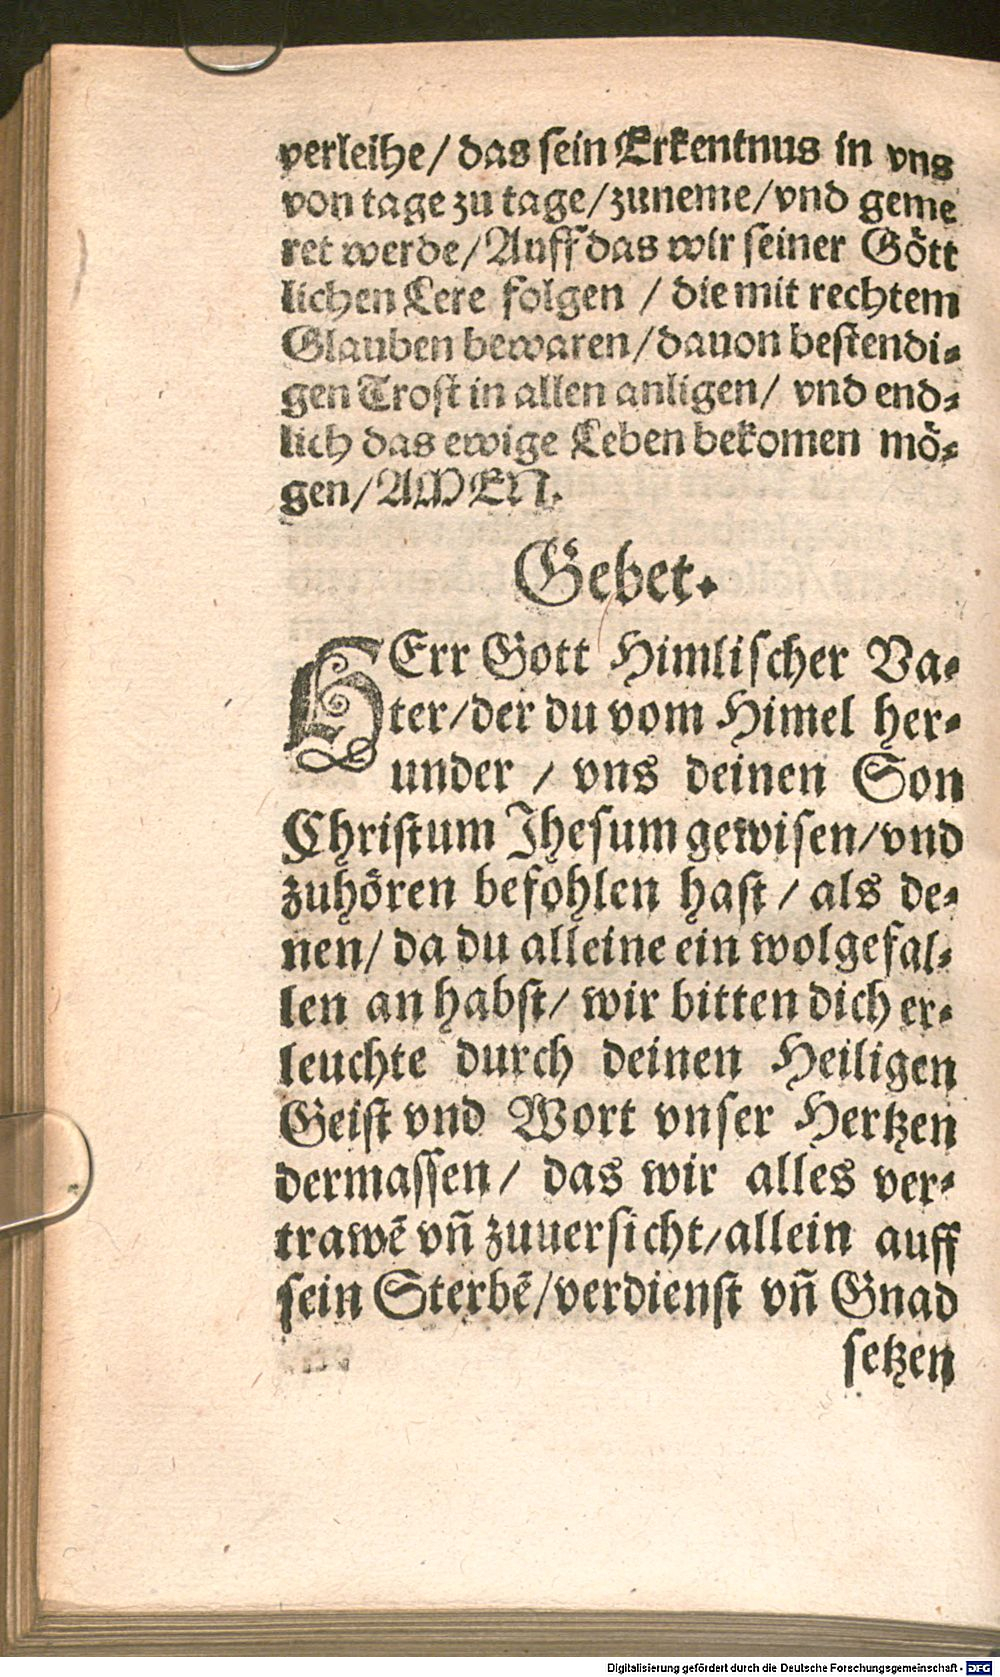 verleihe/ das sein Erkentnus in vns
von tage zu tage/ zuneme/ vnd geme
ret werde/ Auff das wir seiner Gött
lichen Lere folgen / die mit rechtem
Glauben bewaren/ dauon bestendi⸗
gen Trost in allen anligen/ vnd end⸗
lich das ewige Leben bekomen mö⸗
gen/ AMEN.
Gebet.
HErr Gott Himlischer Va⸗
ter/ der du vom Himel her⸗
under / vns deinen Son
Christum Jhesum gewisen/ vnd
zuhören befohlen hast / als de⸗
nen/ da du alleine ein wolgefal⸗
len an habst/ wir bitten dich er⸗
leuchte durch deinen Heiligen
Geist vnd Wort vnser Hertzen
dermassen/ das wir alles ver⸗
trawē vñ zuuersicht/ allein auff
sein Sterbē/ verdienst vñ Gnad
setzen
Digitalisierung gefördert durch die Deutsche Forschungsgemeinschaft - DFG